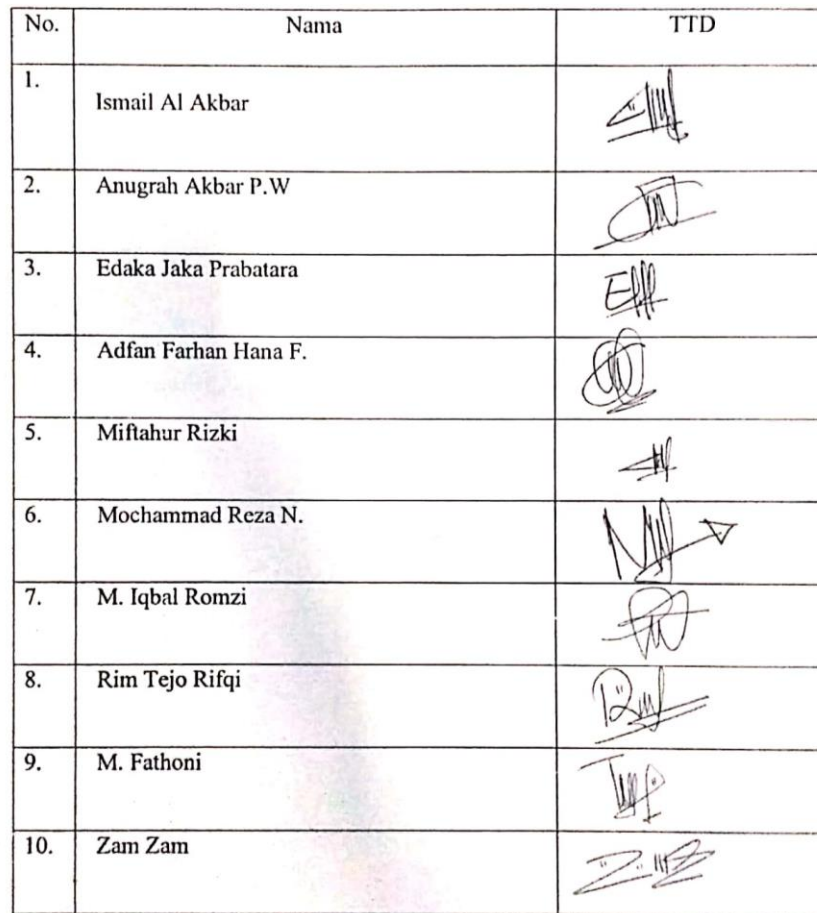 No. Nama TTD
1. Ismail Al Akbar
2. Anugrah Akbar P.W
3. Edaka Jaka Prabatara
4. Adfan Farhan Hana F.
5. Miftahur Rizki
6. Mochammad Reza N.
7. M. Iqbal Romzi
8. Rim Tejo Rifqi
9. M. Fathoni
10. Zam Zam